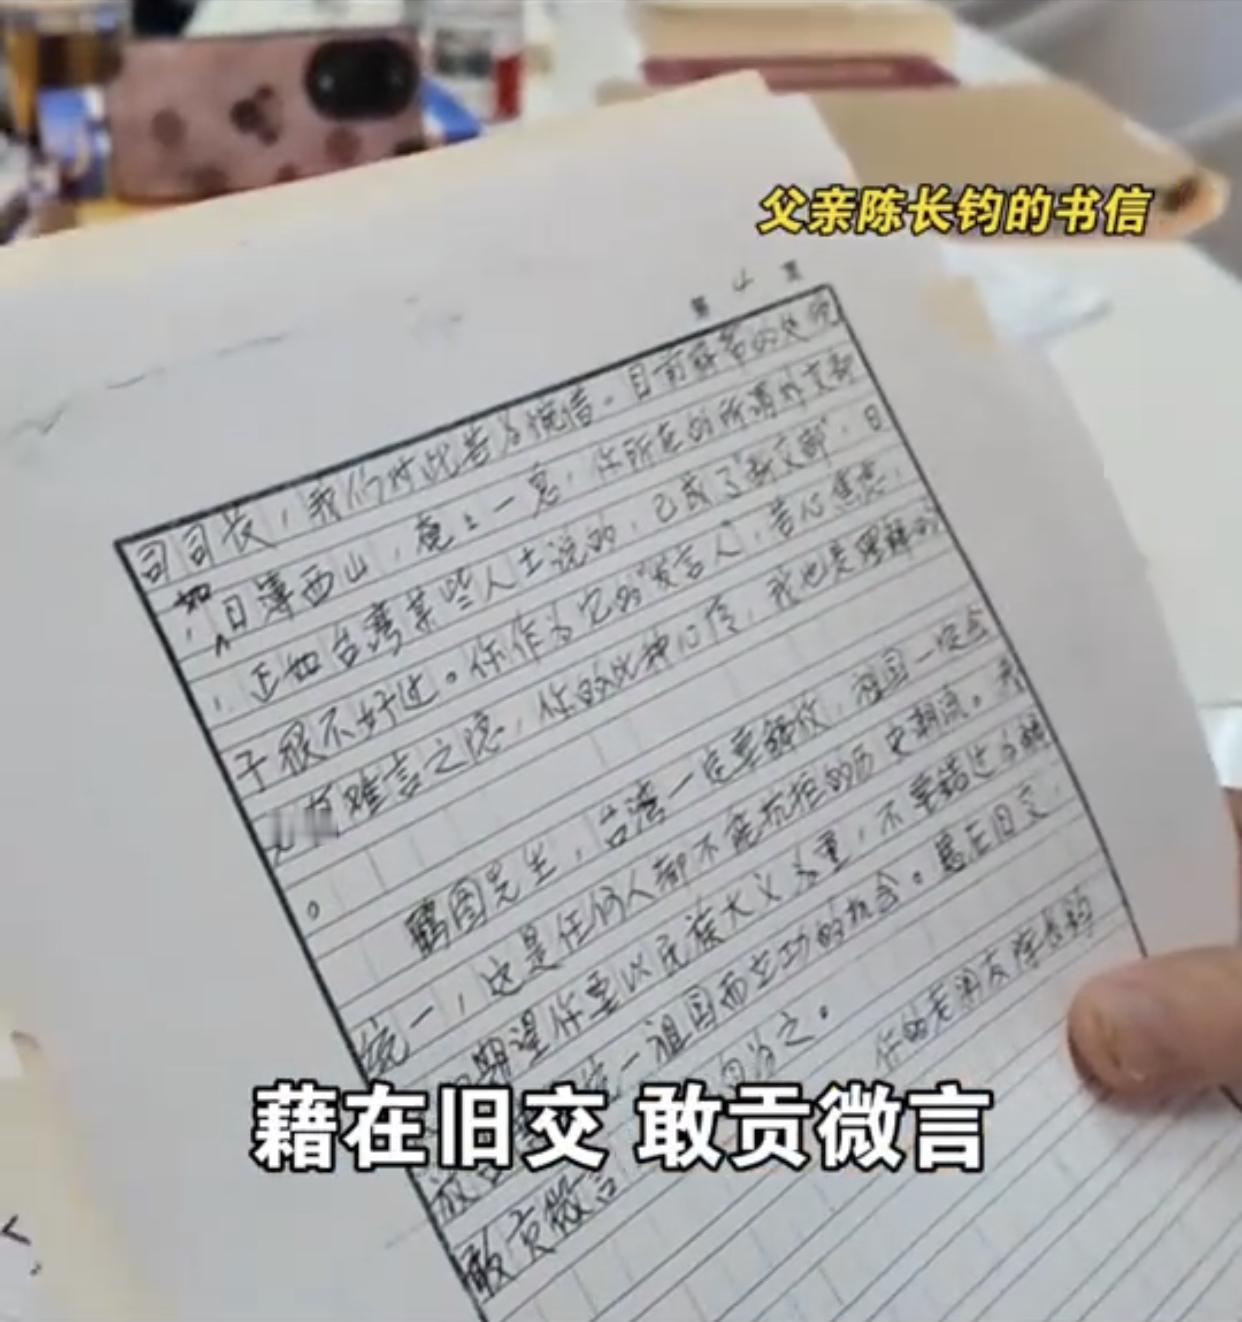 父亲陈长钧的书信
第 4 页
司司长，我们对此甚为惋惜。目前蒋帮的处境
，如日薄西山，奄奄一息，你所在的所谓外交部
，正如台湾某些人士说的，已成了“断交部”，日
子很不好过。你作为它的“发言人”，苦心焦虑，
难言之隐，你的此种心情，我也是理解的
。
鹤图先生，台湾一定要解放，祖国一定会
统一，这是任何人都不能抗拒的历史潮流。
期望你要以民族大义为重，不要错过为解
放台湾统一祖国而立功的机会。藉在旧交，
敢贡微言 为之。
你的老朋友陈长钧
藉在旧交 敢贡微言